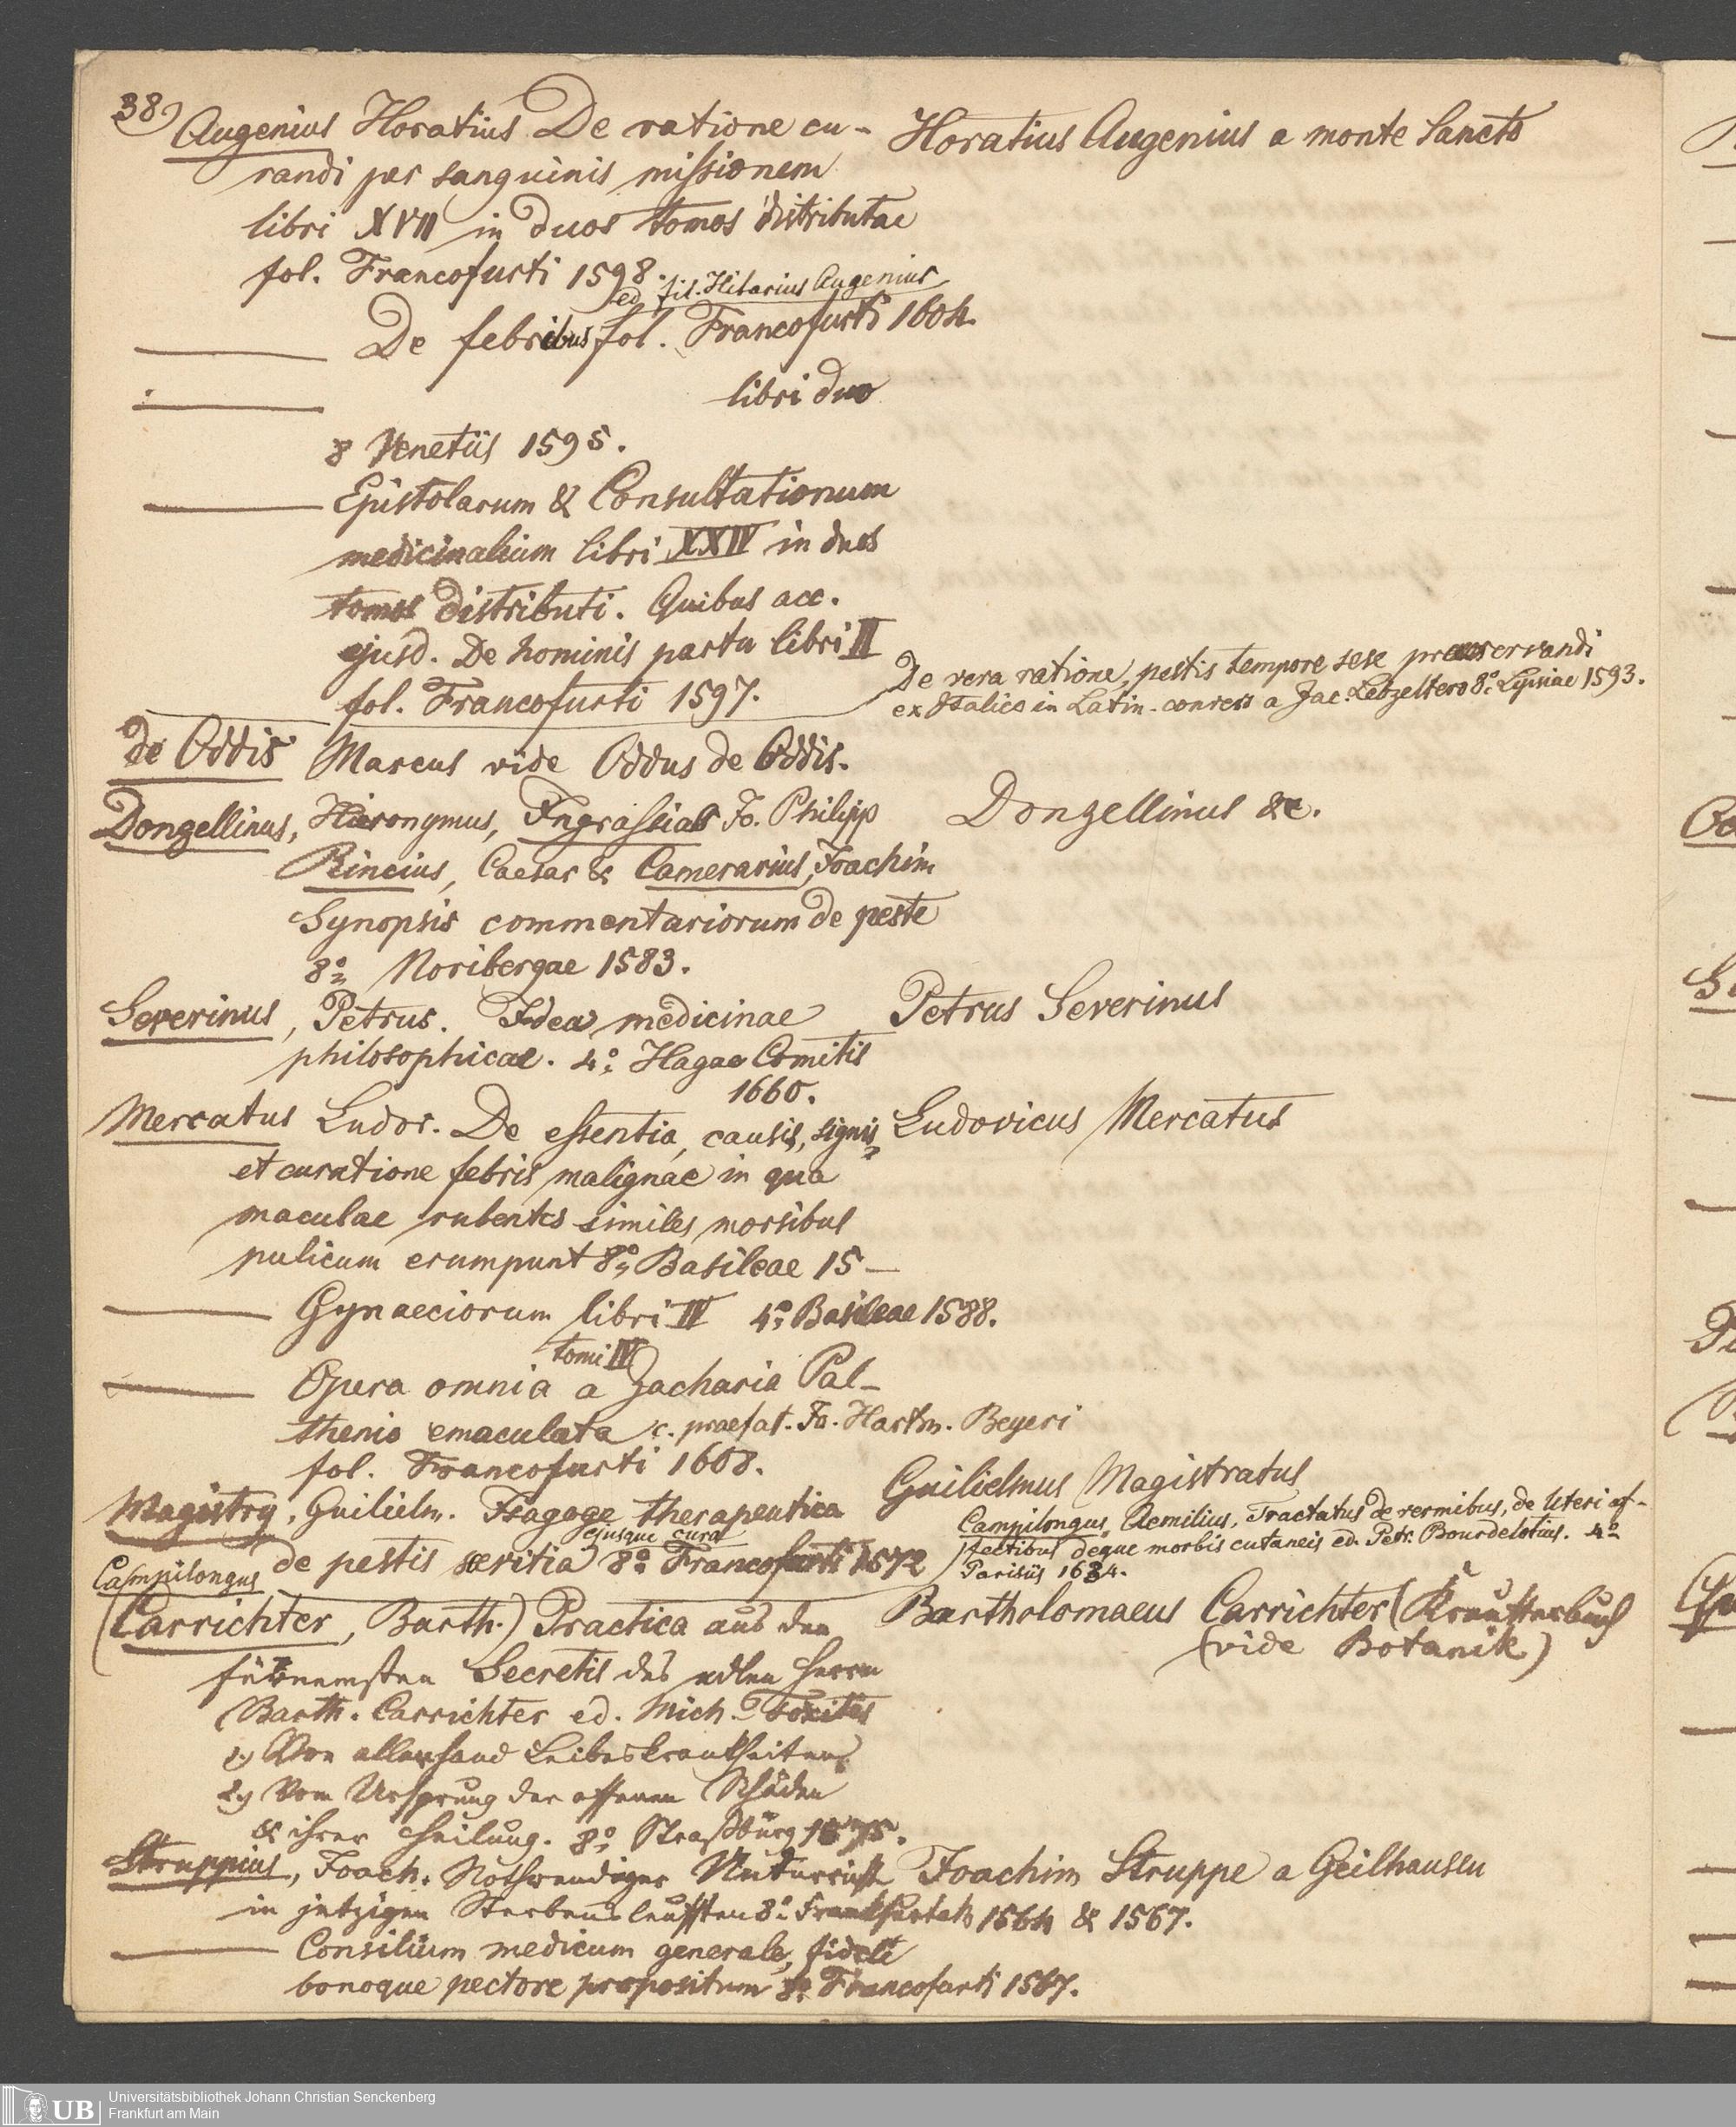 38)
Augenius Horatius De ratione cu-
randi per sanguinis missionem
libri XVII in duos tomos distributae
fol. Francofurti 1598.
ed. fil. Hilarius Augenius
De febribus fol. Francofurti 1604.
libri duo
8 Venetiis 1595.
Epistolarum & Consultationum
medicinalium libri XXIV in duos
tomos distributi. Quibus acc.
ejusd. De hominis partu libri II
fol. Francofurti 1597.
Horatius Augenius a monte Sancto
De vera ratione, pestis tempore sese praeservandi
ex Italico in Latin. convers a Jac. Lebzeltero 8o. Lipsiae 1593.
de Oddis Marcus vide Oddus de Oddis.
Donzellinus, Hieronymus, Ingrassias Jo. Philipp
Rincius, Caesar & Camerarius, Joachim
Synopsis commentariorum de peste
8o. Noribergae 1583.
Donzellinus &c.
Severinus, Petrus. Idea medicinae
philosophicae. 4o. Hagae Comitis
1660.
Petrus Severinus
Mercatus Ludov. De essentia, causis, signis
et curatione febris malignae in qua
maculae rubentes similes morsibus
pulicum erumpunt 8o. Basileae 15—
Gynaeciorum libri IV 4o. Basileae 1588.
tomi IV
Opera omnia a Zacharia Pal-
thenio emaculata c. praefat. Jo. Hartm. Beyeri
fol. Francofurti 1608.
Ludovicus Mercatus
Magistry, Guilielm. Isagoge therapeutica
ejusque cura
de pestis saevitia 8o. Francofurti 1572
Guilielmus Magistratus
Campilongus
Campilongus, Aemilius, Tractatus de vermibus, de Uteri af-
fectibus deque morbis cutaneis ed. Petr. Bourdelotius. 4o
Parisiis 1634.
(Carrichter, Barth.) Practica aus den
fürnemsten Secretis des edlen Herrn
Barth. Carrichter ed. Mich. Toxites
1.) Von allerhand Leibeskrankheiten
2.) Vom Ursprung der offenen Schäden
& ihrer Heilung. 8o. Straßburg 1575.
Bartholomaeus Carrichter (Kreutterbuch
(vide Botanik)
Struppius, Joach. Nothwendiger Unterricht
in jetzigen Sterbensleufften 8o. Frankfurt 1564 & 1567.
Consilium medicum generale, fideli
bonoque pectore propositum 8o. Francofurti 1567.
Joachim Struppe a Geilhausen
UB Universitätsbibliothek Johann Christian Senckenberg
Frankfurt am Main